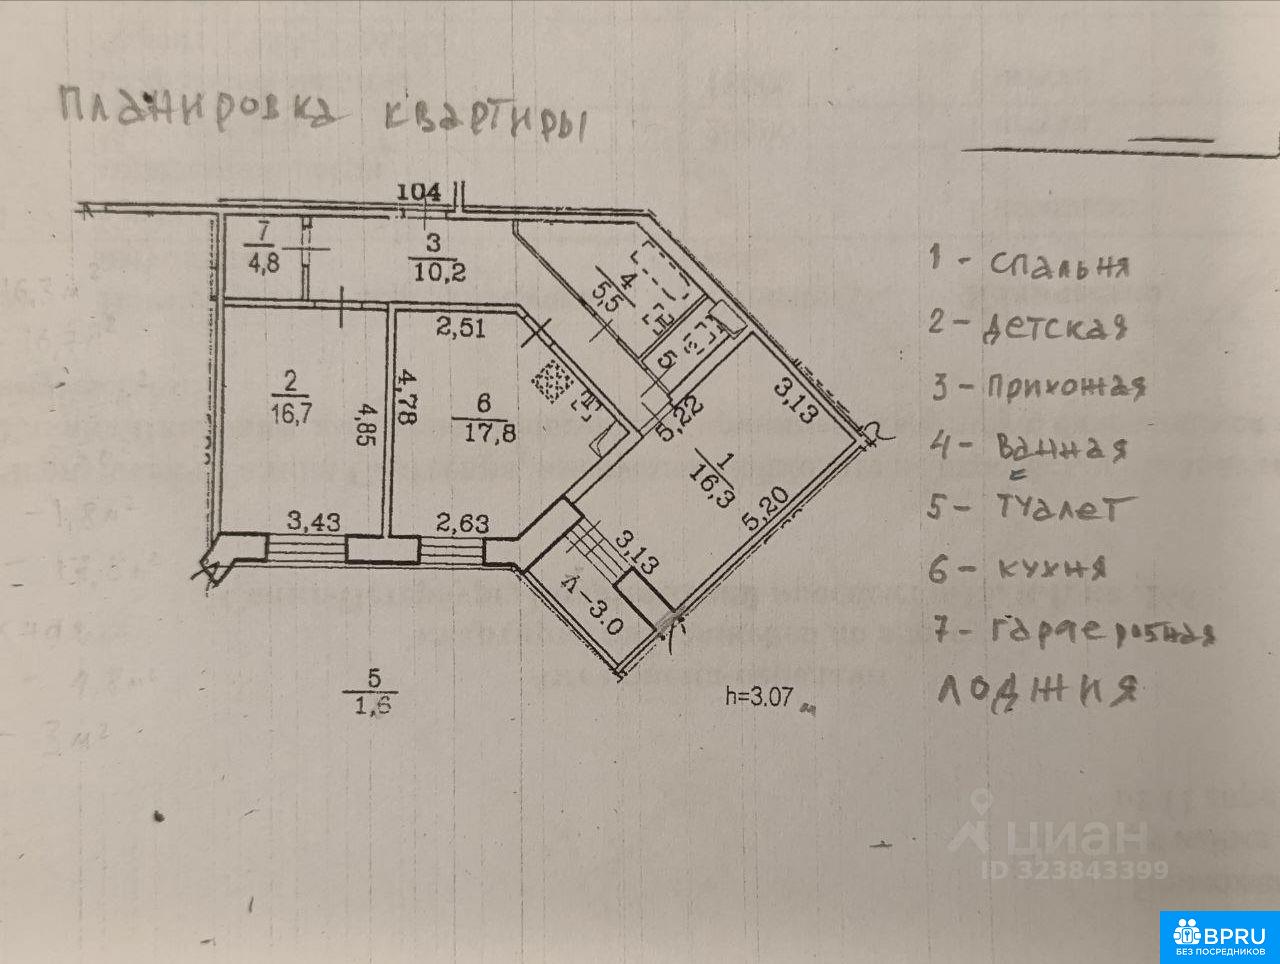 Планировка квартиры
104
7
4,8
3
10,2
4
5,5
5
2,51
2
16,7
4,85
4,78
6
17,8
5,22
3,13
1
16,3
5,20
3,43
2,63
3,13
Л-3.0
5
1,6
h=3.07 м
1 - Спальня
2 - детская
3 - Прихожая
4 - Ванная
5 - Туалет
6 - кухня
7 - гардеробная
ЛОДЖИЯ
16,3 м²
16,7 м²
- 1,8 м²
- 17,8 м²
- 4,8 м²
- 3 м²
циан
ID 323843399
BPRU
БЕЗ ПОСРЕДНИКОВ